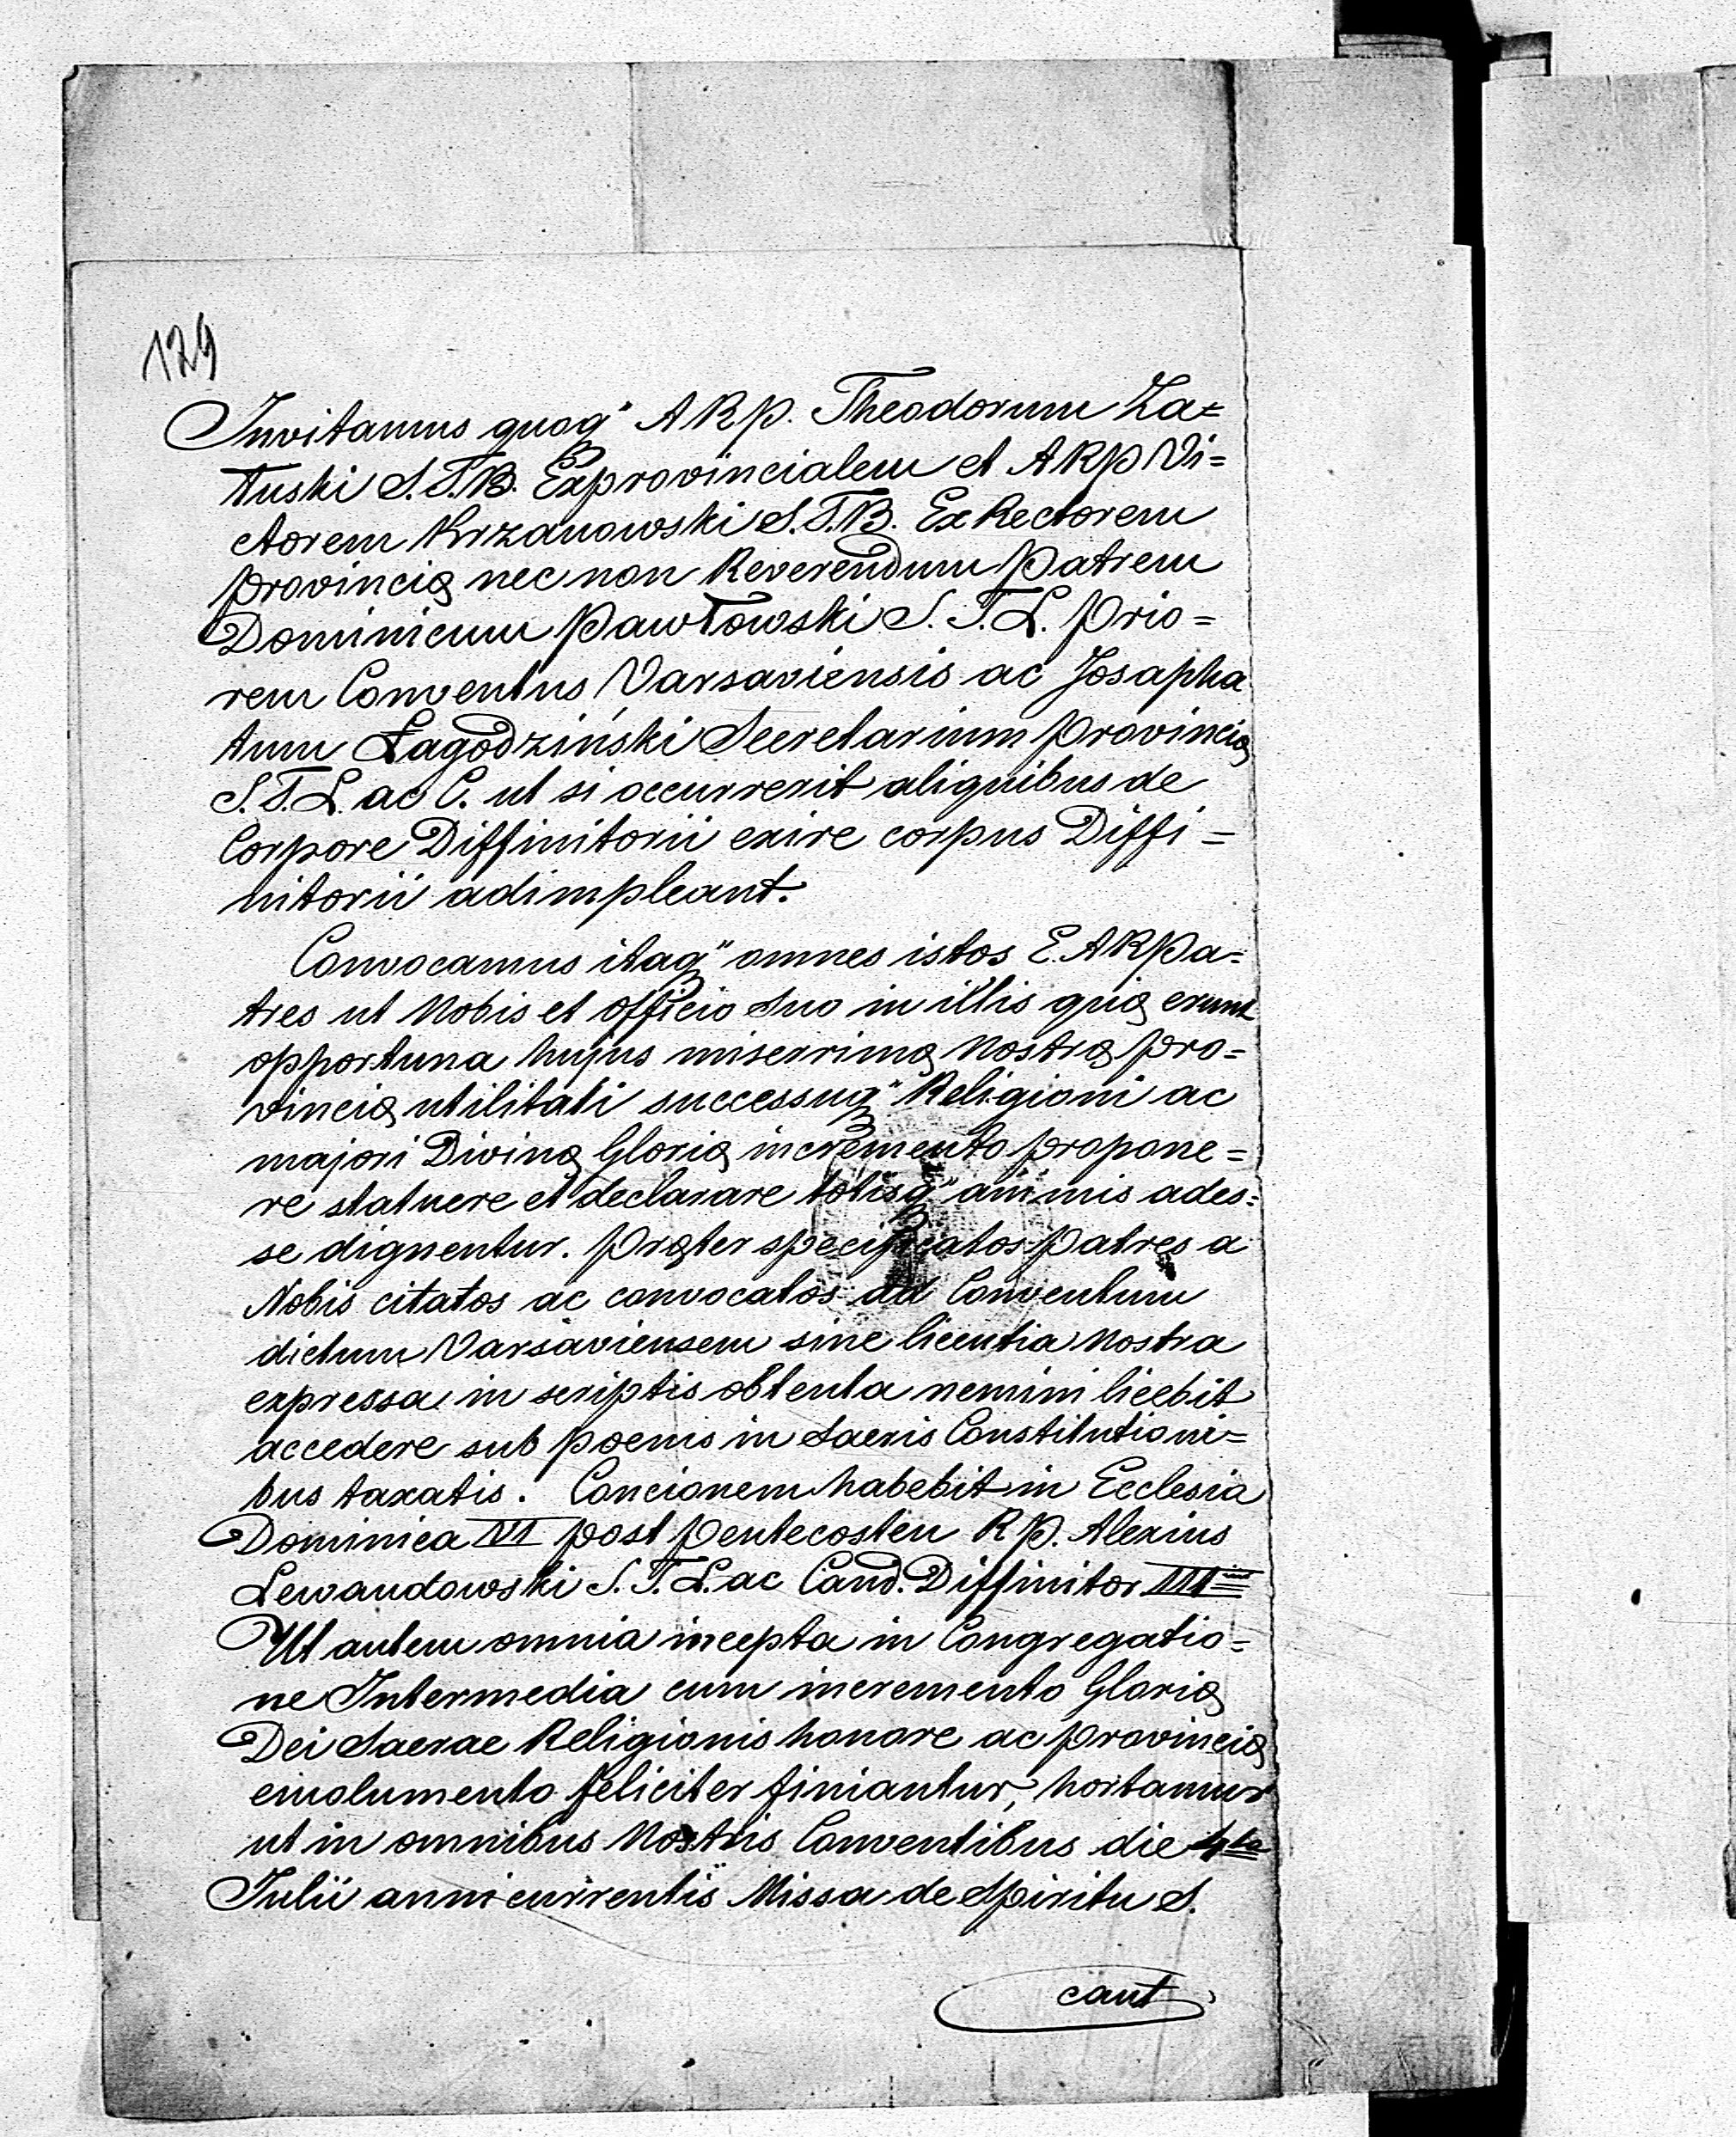 129
Invitamus quoq" ARP. Theodorum Za=
łuski S.T.B. Exprovincialem et ARP Vi=
ctorem Krzanowski S.T.B. Ex Rectorem
provincię nec non Reverendum Patrem
Dominicum Pawłowski S.T.L. Prio=
rem Conventus Varsaviensis ac Josapha
tum Łagodziński Secretarium Provincię
S.T.L. ac C. ut si occurrerit aliquibus de
Corpore Diffinitorii exire corpus Diffi=
nitorii adimpleant.
Convocamus itaq" omnes istos E. ARPa=
tres ut Nobis et officio suo in illis quię erunt
opportuna hujus miserrimę Nostrę Pro=
vincię utilitati successuq" Religioni ac
majori Divinę Glorię incremento propone=
re statuere et declarare totisq" animis ades=
se dignentur. Pręter specificatos Patres a
Nobis citatos ac convocatos ad Conventum
dictum Varsaviensem sine licentia Nostra
expressa in scriptis obtenta nemini licebit
accedere sub poenis in Sacris Constitutioni=
bus taxatis. Concionem habebit in Ecclesia
Dominica VI post Pentecosten R P. Alexius
Lewandowski S.T.L. ac Cand. Diffinitor III ius
Ut autem omnia incepta in Congregatio=
ne Intermedia cum incremento Glorię
Dei Sacrae Religionis honore ac Provincię
emolumento feliciter finiantur, hortamur
ut in omnibus Nostris Conventibus die 4ta
Julii anni currentis Missa de Spiritu S.
cant